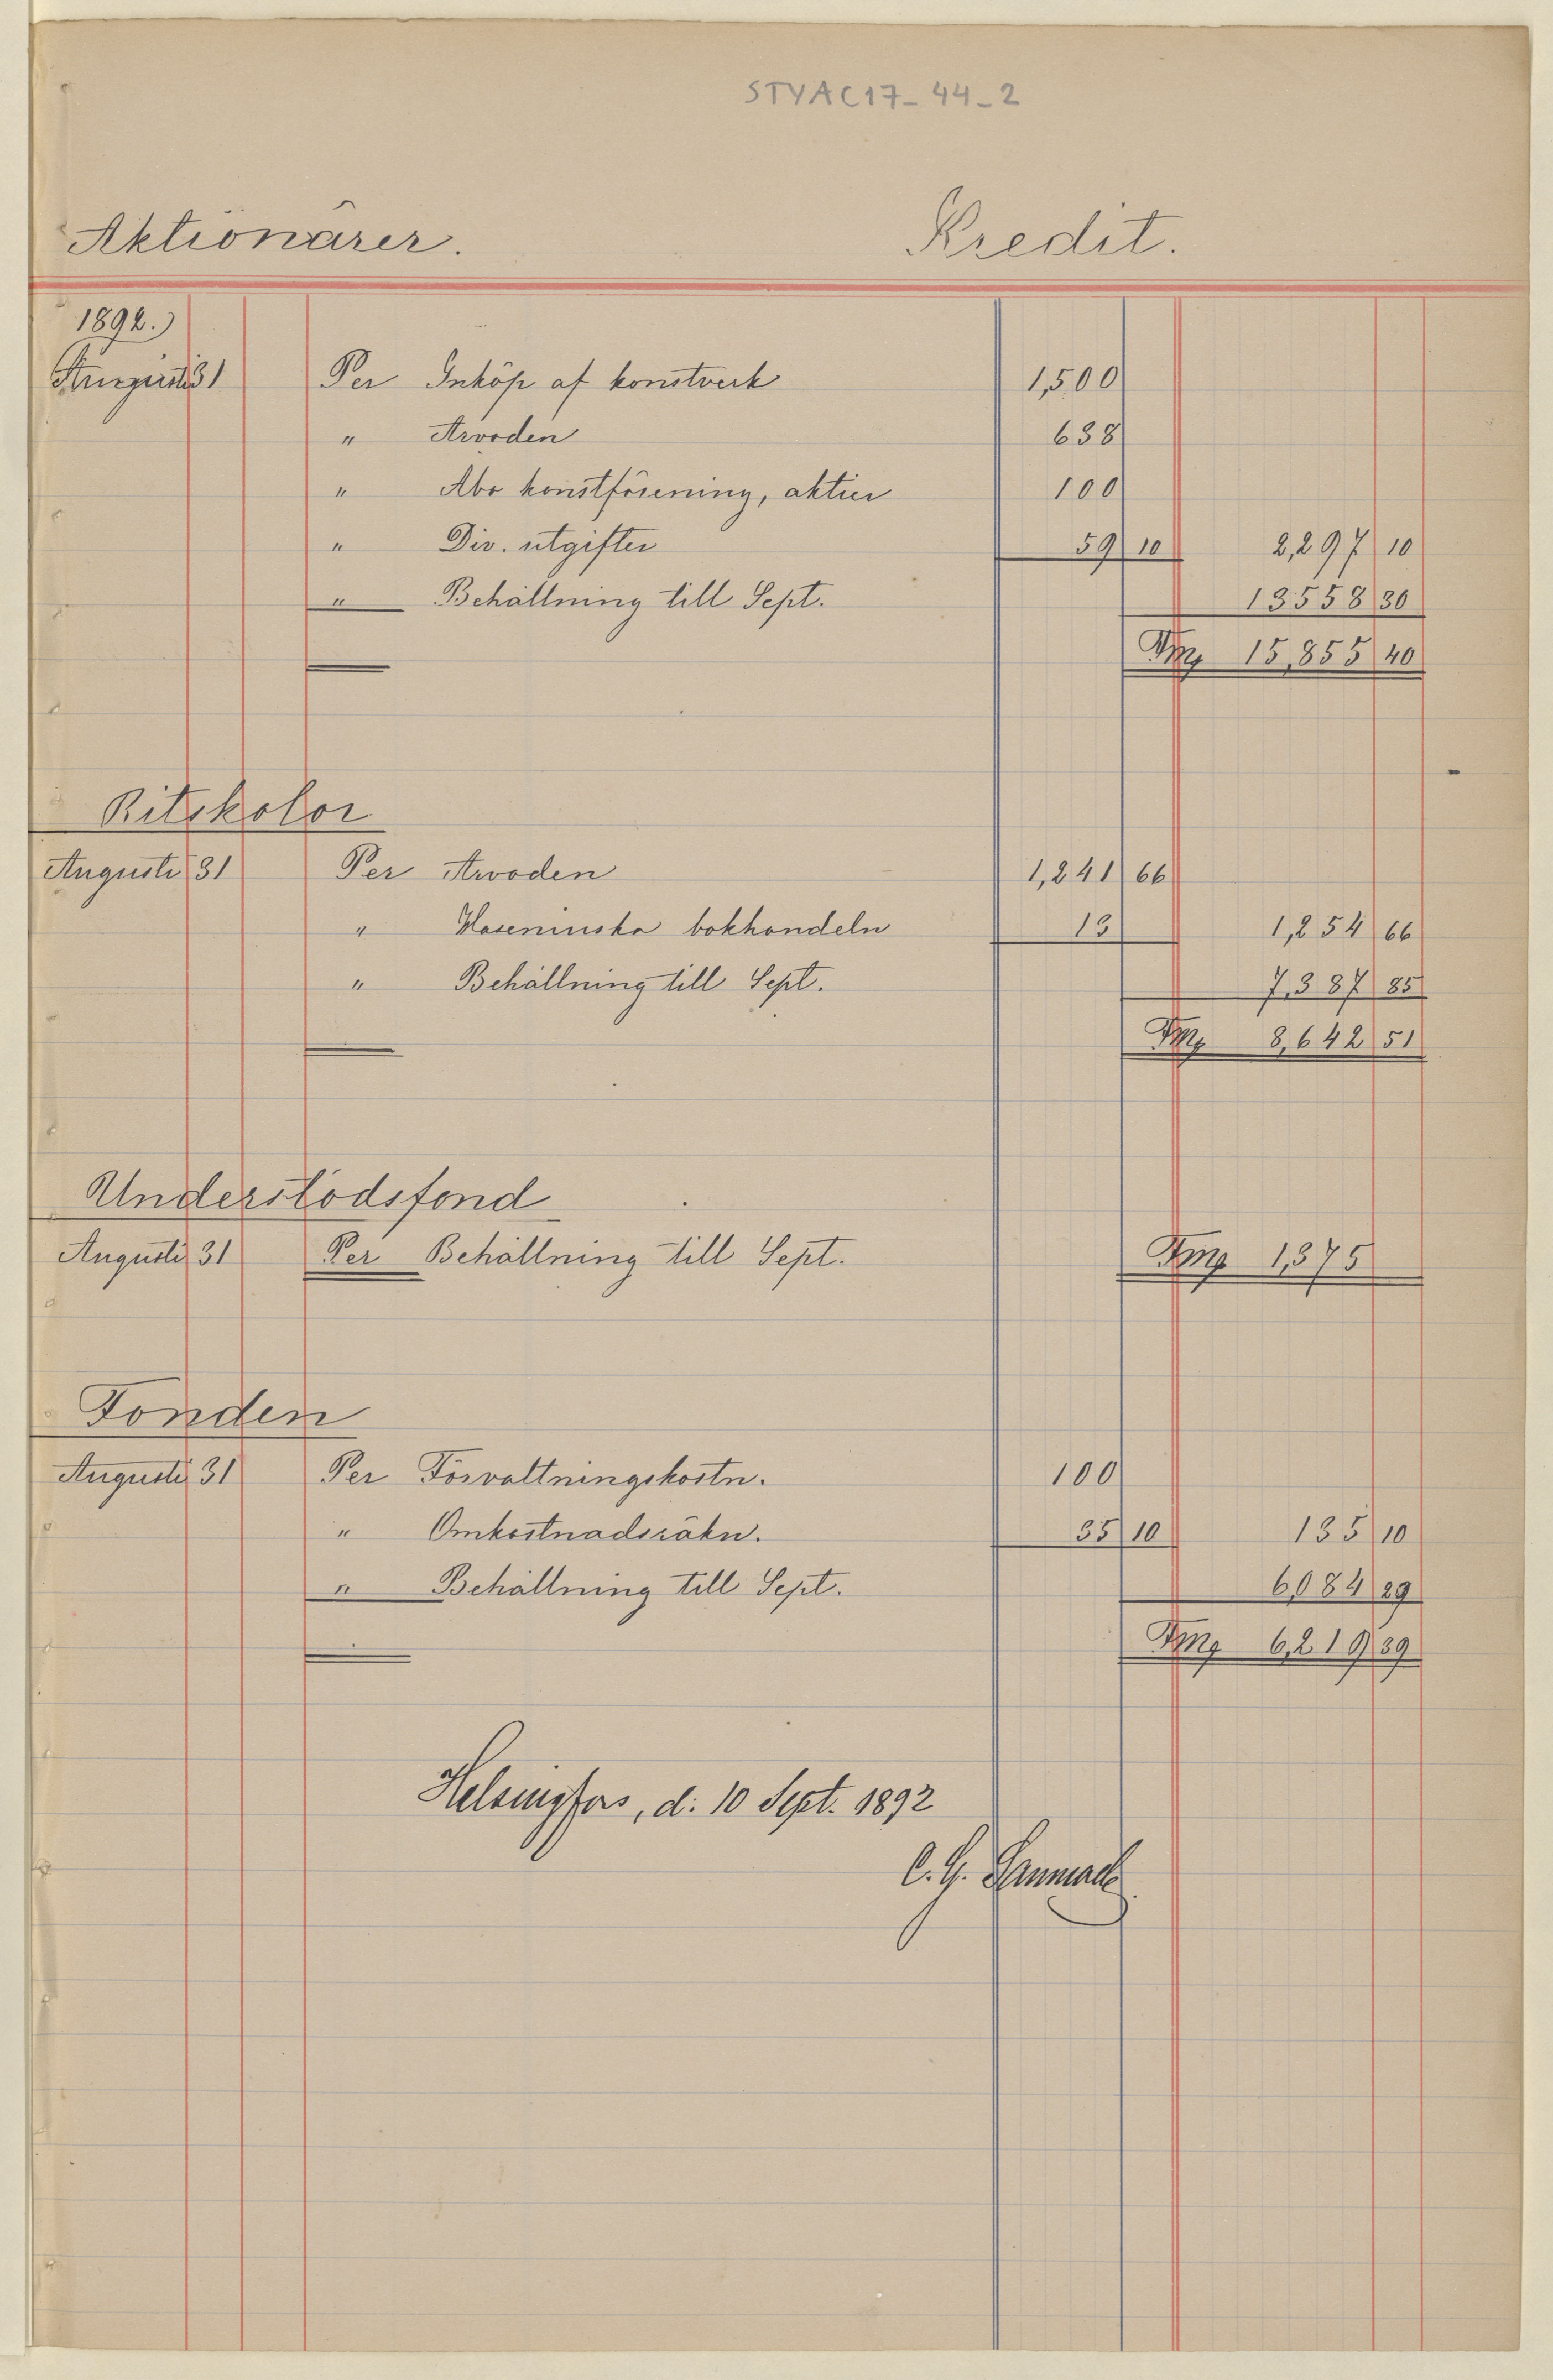 STYAC17_44_2
Aktionärer. Kredit.
1892.
Augusti 31 Per Inköp af konstverk 1,500
" Arvoden 638
" Abo konstförening, aktier 100
" Div. utgifter 59 10 2,297 10
" Behållning till Sept. 13558 30
Fmg 15,855 40
Ritskolor
Augusti 31 Per Arvoden 1,241 66
" Waseniuska bokhandeln 13 1,254 66
" Behållning till Sept. 7,387 85
Fmg 8,642 51
Understödsfond
Augusti 31 Per Behållning till Sept. Fmg 1,375
Fonden
Augusti 31 Per Förvaltningskostn. 100
" Omkostnadsräkn. 35 10 135 10
" Behållning till Sept. 6,084 29
Fmg 6,219 39
Helsingfors, d. 10 Sept. 1892
C. G.